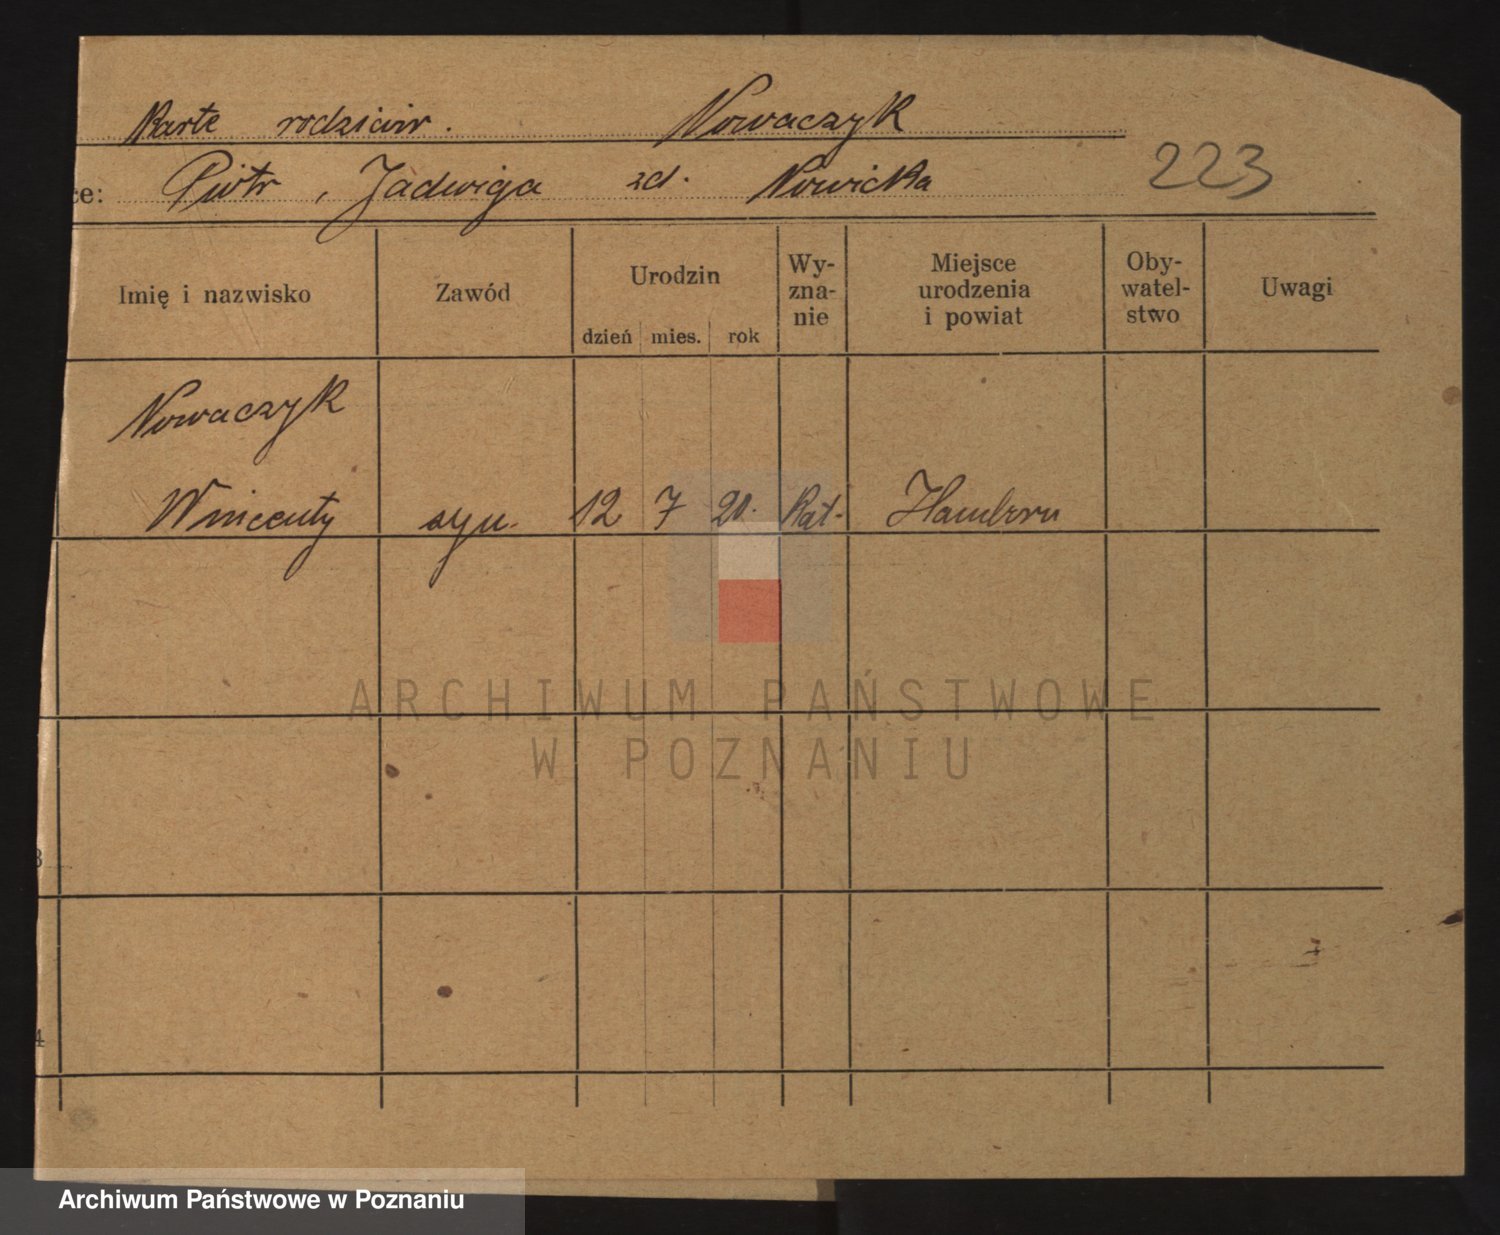 Karte rodziców. Nowaczyk
ce: Piotr, Jadwiga zd. Nowicka 223
Imię i nazwisko Zawód Urodzin dzień mies. rok Wy-zna-nie Miejsce urodzenia i powiat Oby-watel-stwo Uwagi
Nowaczyk
Wincenty syn. 12 7 20. Kat. Hamborn
ARCHIWUM PAŃSTWOWE
W POZNANIU
3
4
Archiwum Państwowe w Poznaniu